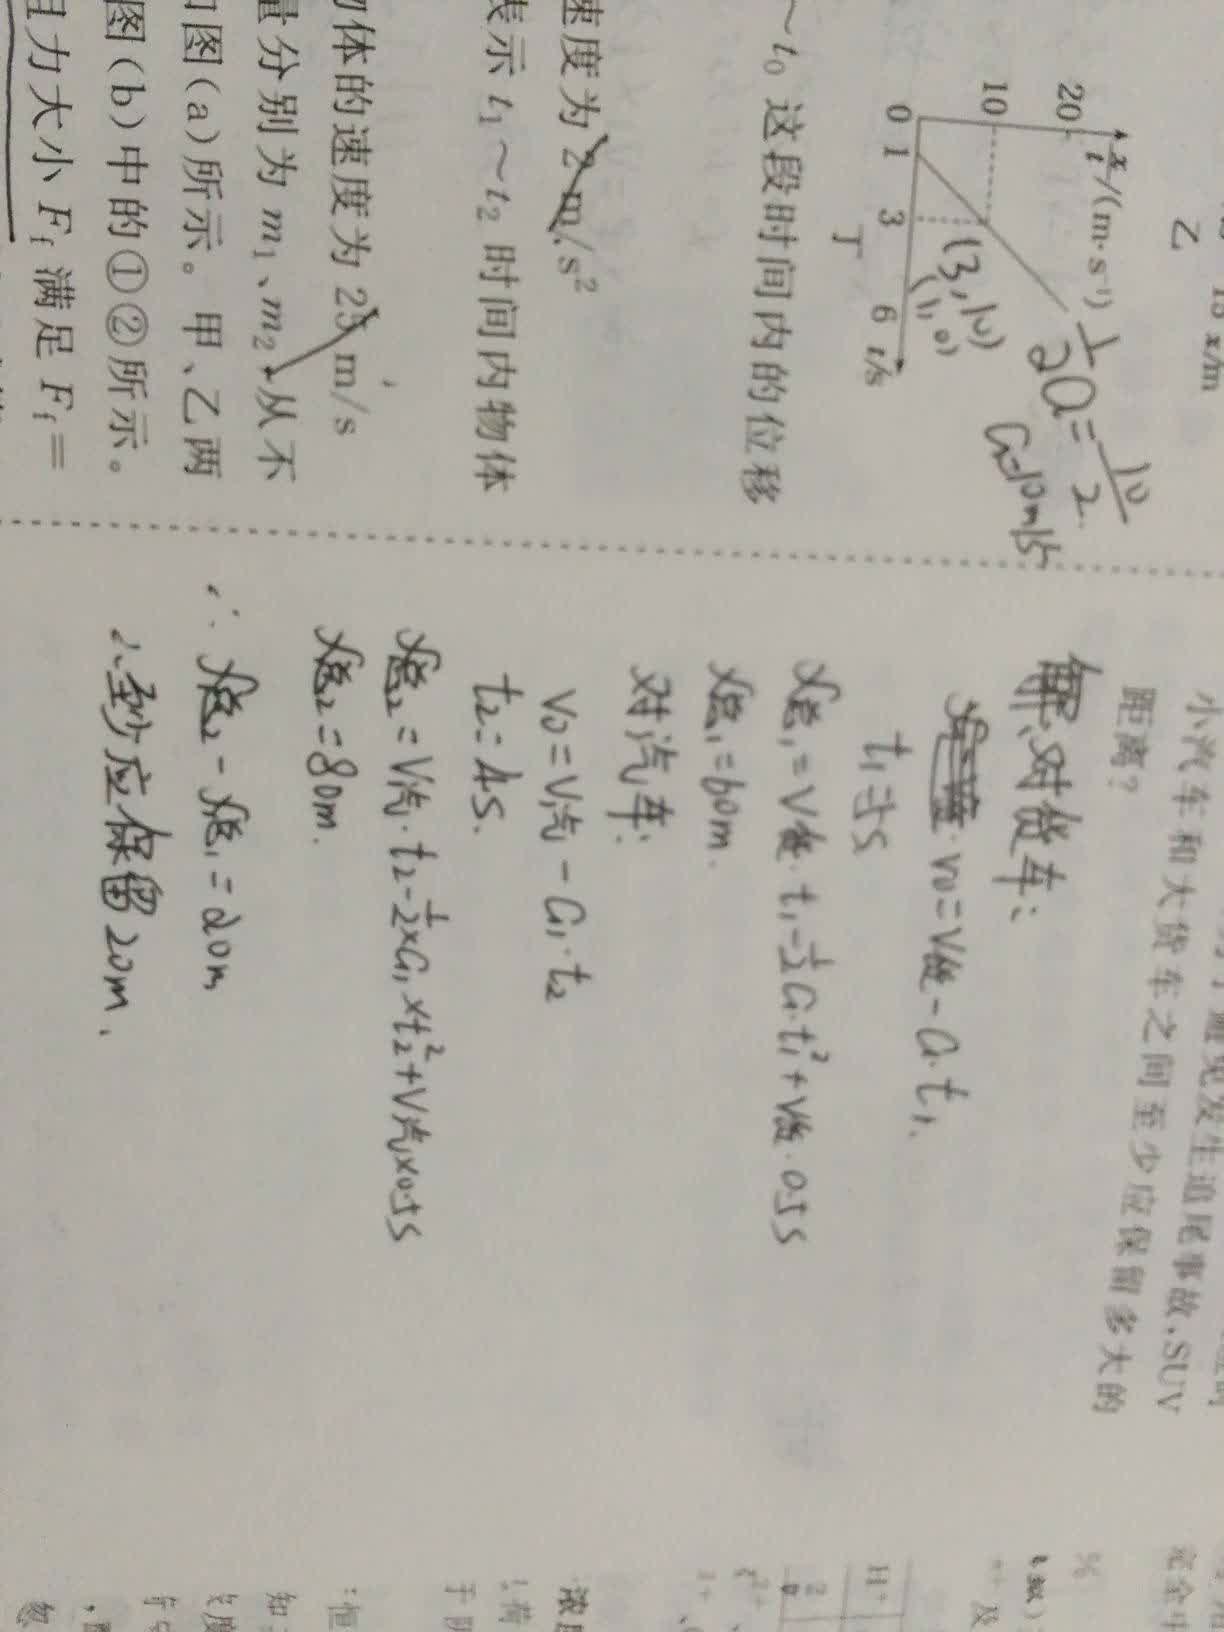 乙
x/m
x/t/(m·s⁻¹)
20
10
0
1
3
6
t/s
(3,10)
(1,0)
丁
1/2a=10/2
a=10m/s
~t₀ 这段时间内的位移
速度为 2 m/s²
表示 t₁~t₂ 时间内物体
体的速度为 25 m/s
量分别为 m₁、m₂,从不
图(a)所示。甲、乙两
图(b)中的①②所示。
力大小 F_f 满足 F_f=
免发生追尾事故,SUV
小汽车和大货车之间至少应保留多大的
距离?
解:对货车:
v₀=V货-a·t₁
t₁=5s
x总₁=V货·t₁-1/2a·t₁²+V货·0.5s
x总₁=60m.
对汽车:
v₀=V汽-a₁·t₂
t₂=4s.
x总₂=V汽·t₂-1/2×a₁×t₂²+V汽×0.5s
x总₂=80m.
∴x总₂-x总₁=20m
∴至少应保留20m.